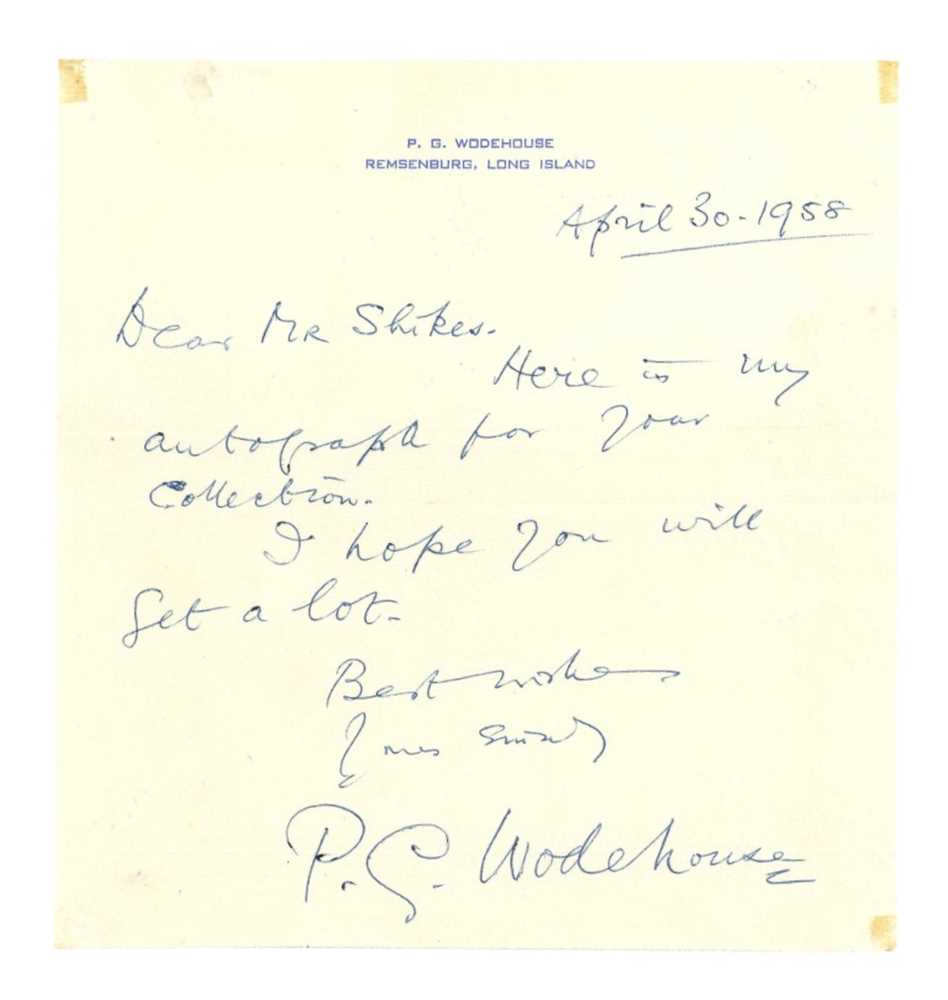 P. G. WODEHOUSE
REMSENBURG, LONG ISLAND
April 30-1958
Dear Mr Shikes.
Here is my
autograph for your
Collection.
I hope you will
get a lot.
Best wishes
Yours sincerely
P. G. Wodehouse